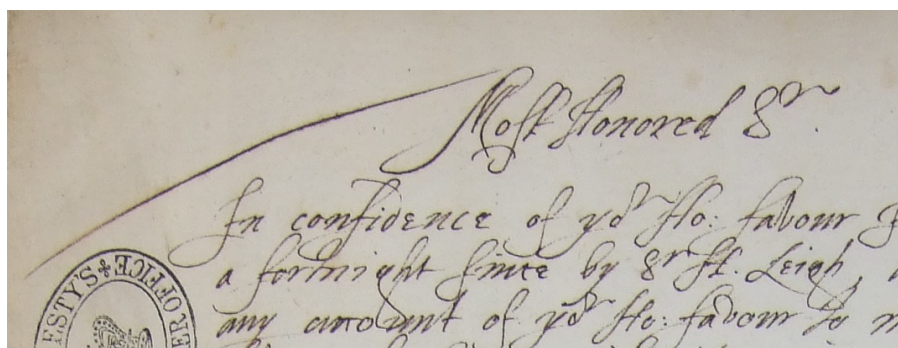 Most Honored Sr.
In confidence of yor Ho: favour I
a fortnight since by Sr H. Leigh,
any account of yor Ho: favour to m
STATE PAPER OFFICE